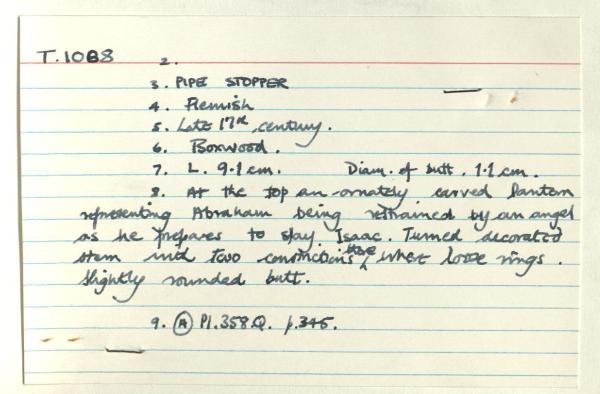 T.1068
2.
3. PIPE STOPPER
4. Flemish
5. Late 17th century.
6. Boxwood.
7. L. 9.1 cm. Diam. of butt. 1.1 cm.
8. At the top an ornately carved lantern
representing Abraham being restrained by an angel
as he prepares to slay Isaac. Turned decorated
stem with two constrictions, three loose rings.
Slightly rounded butt.
9. (A) Pl.358.Q. p.345.